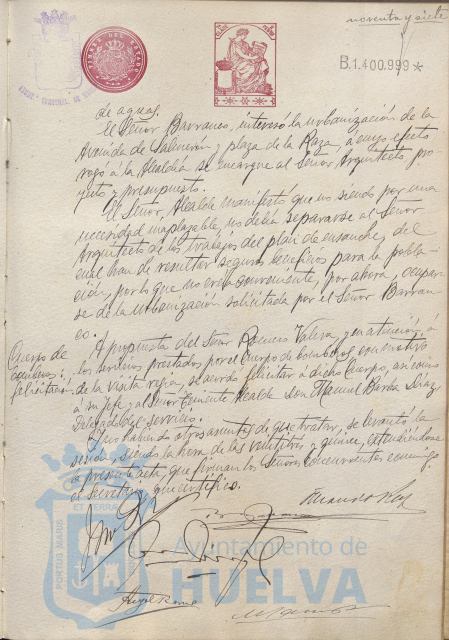 noventa y siete
TIMBRE DEL ESTADO
B.1.400.999 *
de aguas.
El Señor Barranco, interesó la urbanización de la
Avenida de Salmerón y plaza de la Raza, a cuyo efecto
rogó a la Alcaldía se encargue al Señor Arquitecto, pro-
yecto y presupuesto.
El Señor Alcalde manifestó que no siendo por una
necesidad inaplazable, no debía separarse al Señor
Arquitecto de los trabajos del plan de ensanche, del
cual han de resultar seguros beneficios para la pobla-
ción, por lo que no creía conveniente, por ahora, ocupar-
se de la urbanización solicitada por el Señor Barran-
co.
Cuerpo de
bomberos:
felicitación
A propuesta del Señor Romero y en atención a
los servicios prestados por el Cuerpo de bomberos con motivo
de la visita regia, se acordó felicitar a dicho Cuerpo, así como
a su Jefe y al Señor Teniente Alcalde Don Manuel Barba Díaz
Delegado del servicio.
Y no habiendo otros asuntos de que tratar, se levantó la
sesión, siendo la hora de las veintitrés y quince, extendiéndose
la presente acta, que firman los Señores concurrentes conmigo
el Secretario, que certifico.
PORTUS MARIS
ET TERRAE
Ayuntamiento de
HUELVA